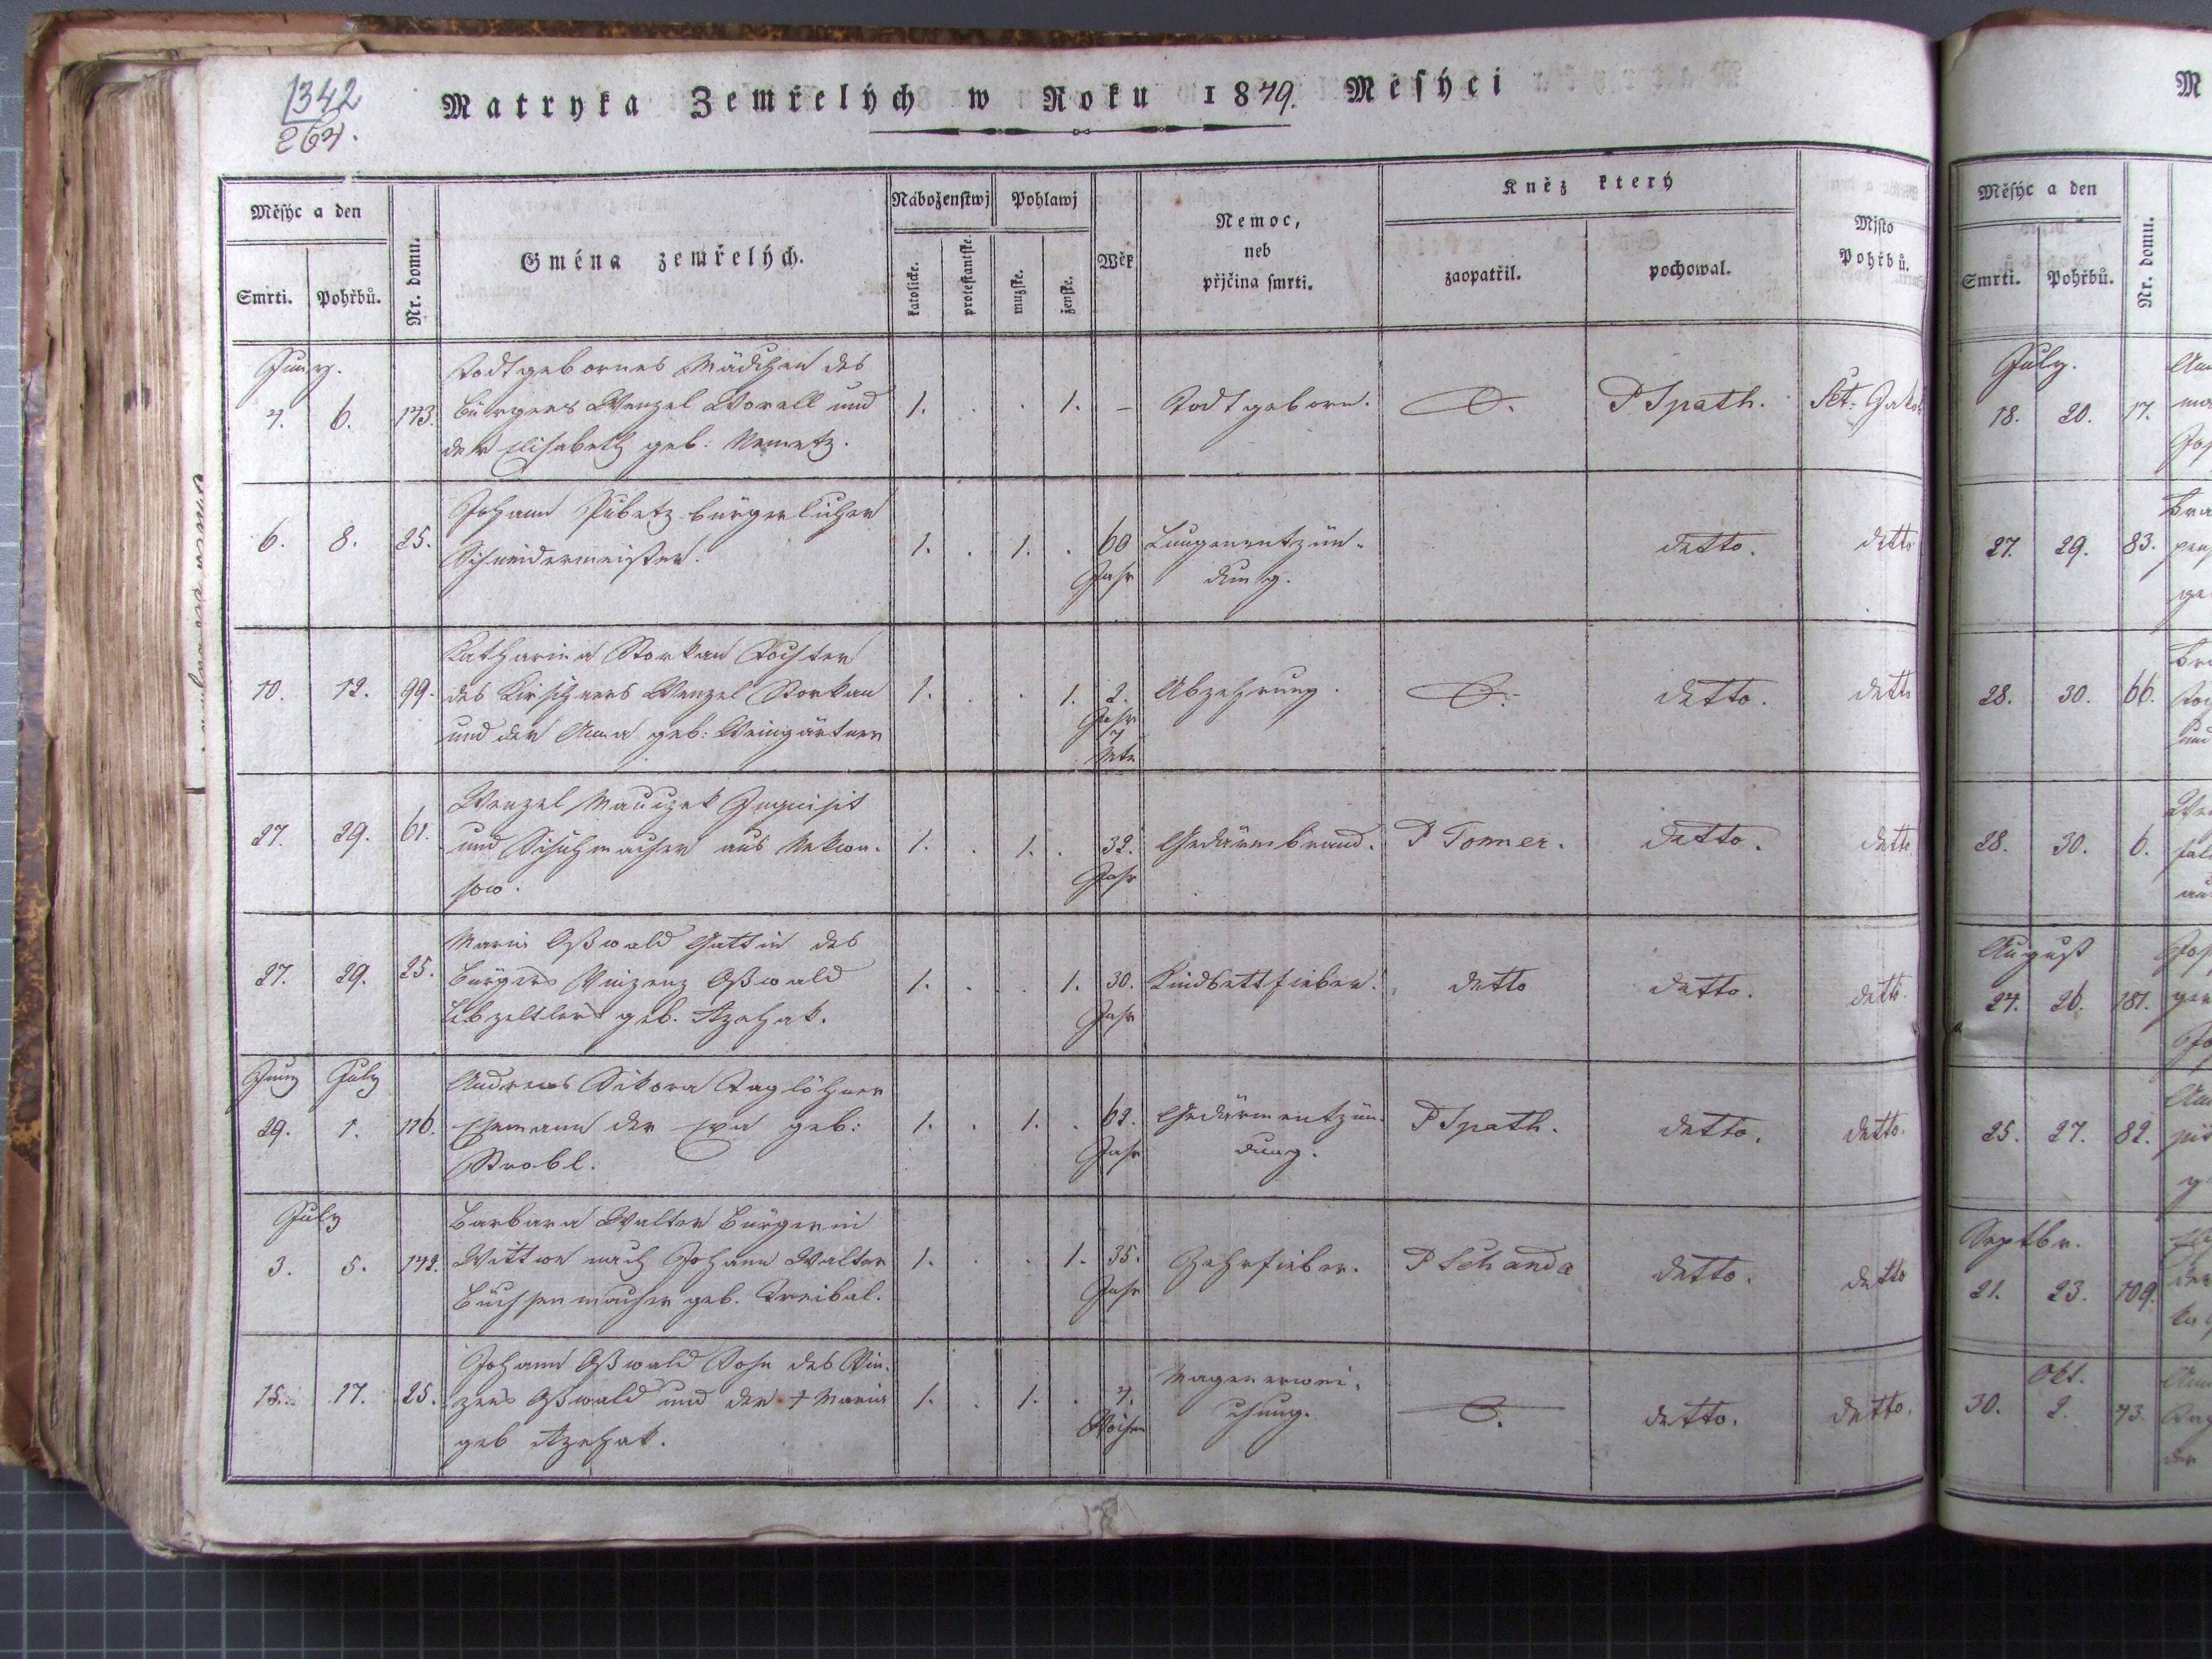 1342
264.
Matryka Zemřelých w Roku 1849. Měsýci
Měsýc a den
Smrti. Pohřbů.
Nr. domu.
Gména zemřelých.
Náboženstwj
katolické. protestantské.
Pohlawj
mužské. ženské.
Wěk
Nemoc,
neb
přjčina smrti.
Kněz který
zaopatřil. pochowal.
Mjsto
Pohřbů.
Juny.
4. 6. 143.
Todtgebornes Mädchen des
Bürgers Wenzel Worell und
der Elisabeth geb: Nemetz.
1. . . 1. – Todtgeborn. P Spath. Sct: Jakob
6. 8. 25.
Johann Pubetz bürgerlicher
Schneidermeister.
1. . 1. . 60 Jahr
Lungenentzün-
dung.
detto. detto
10. 12. 99.
Katharina Storkan Tochter
des Kirschners Wenzel Storkan
und der Anna geb: Weingärtner
1. . . 1. 2. Jahr 4 Mte
Abzehrung. detto. detto
27. 29. 61.
Wenzel Mauczek Inquisit
und Schuhmacher aus Nekwa-
sow.
1. . 1. . 32. Jahr
Gedärmbrand. P Tomer. detto. detto
27. 29. 25.
Maria Oßwald Gattin des
Bürgers Vinzenz Oßwald
Lebzeltlers geb. Azehak.
1. . . 1. 30. Jahr
Kindbettfieber. detto detto. detto.
Juny July
29. 1. 116.
Andreas Sikora Taglöhner
Ehemann der Eva geb:
Strobl.
1. . 1. . 62. Jahr
Gedärmentzün-
dung.
P Spath. detto. detto.
July
3. 5. 142.
Barbara Walter Bürgerin
Wittwe nach Johann Walter
Büchsenmacher geb. Treibal.
1. . . 1. 35. Jahr
Zehrfieber. P Schanda detto. detto
15. 17. 25.
Johann Oßwald Sohn des Vin-
zens Oßwald und der + Maria
geb Azehak.
1. . 1. . 4. Wochen
Magenerwei-
chung.
detto. detto.
M
Měsýc a den
Smrti. Pohřbů.
Nr. domu.
July.
18. 20. 17.
27. 29. 83.
28. 30. 66.
28. 30. 6.
August
24. 26. 181.
25. 27. 82.
Septbr.
21. 23. 109.
Okt.
30. 2. 43.